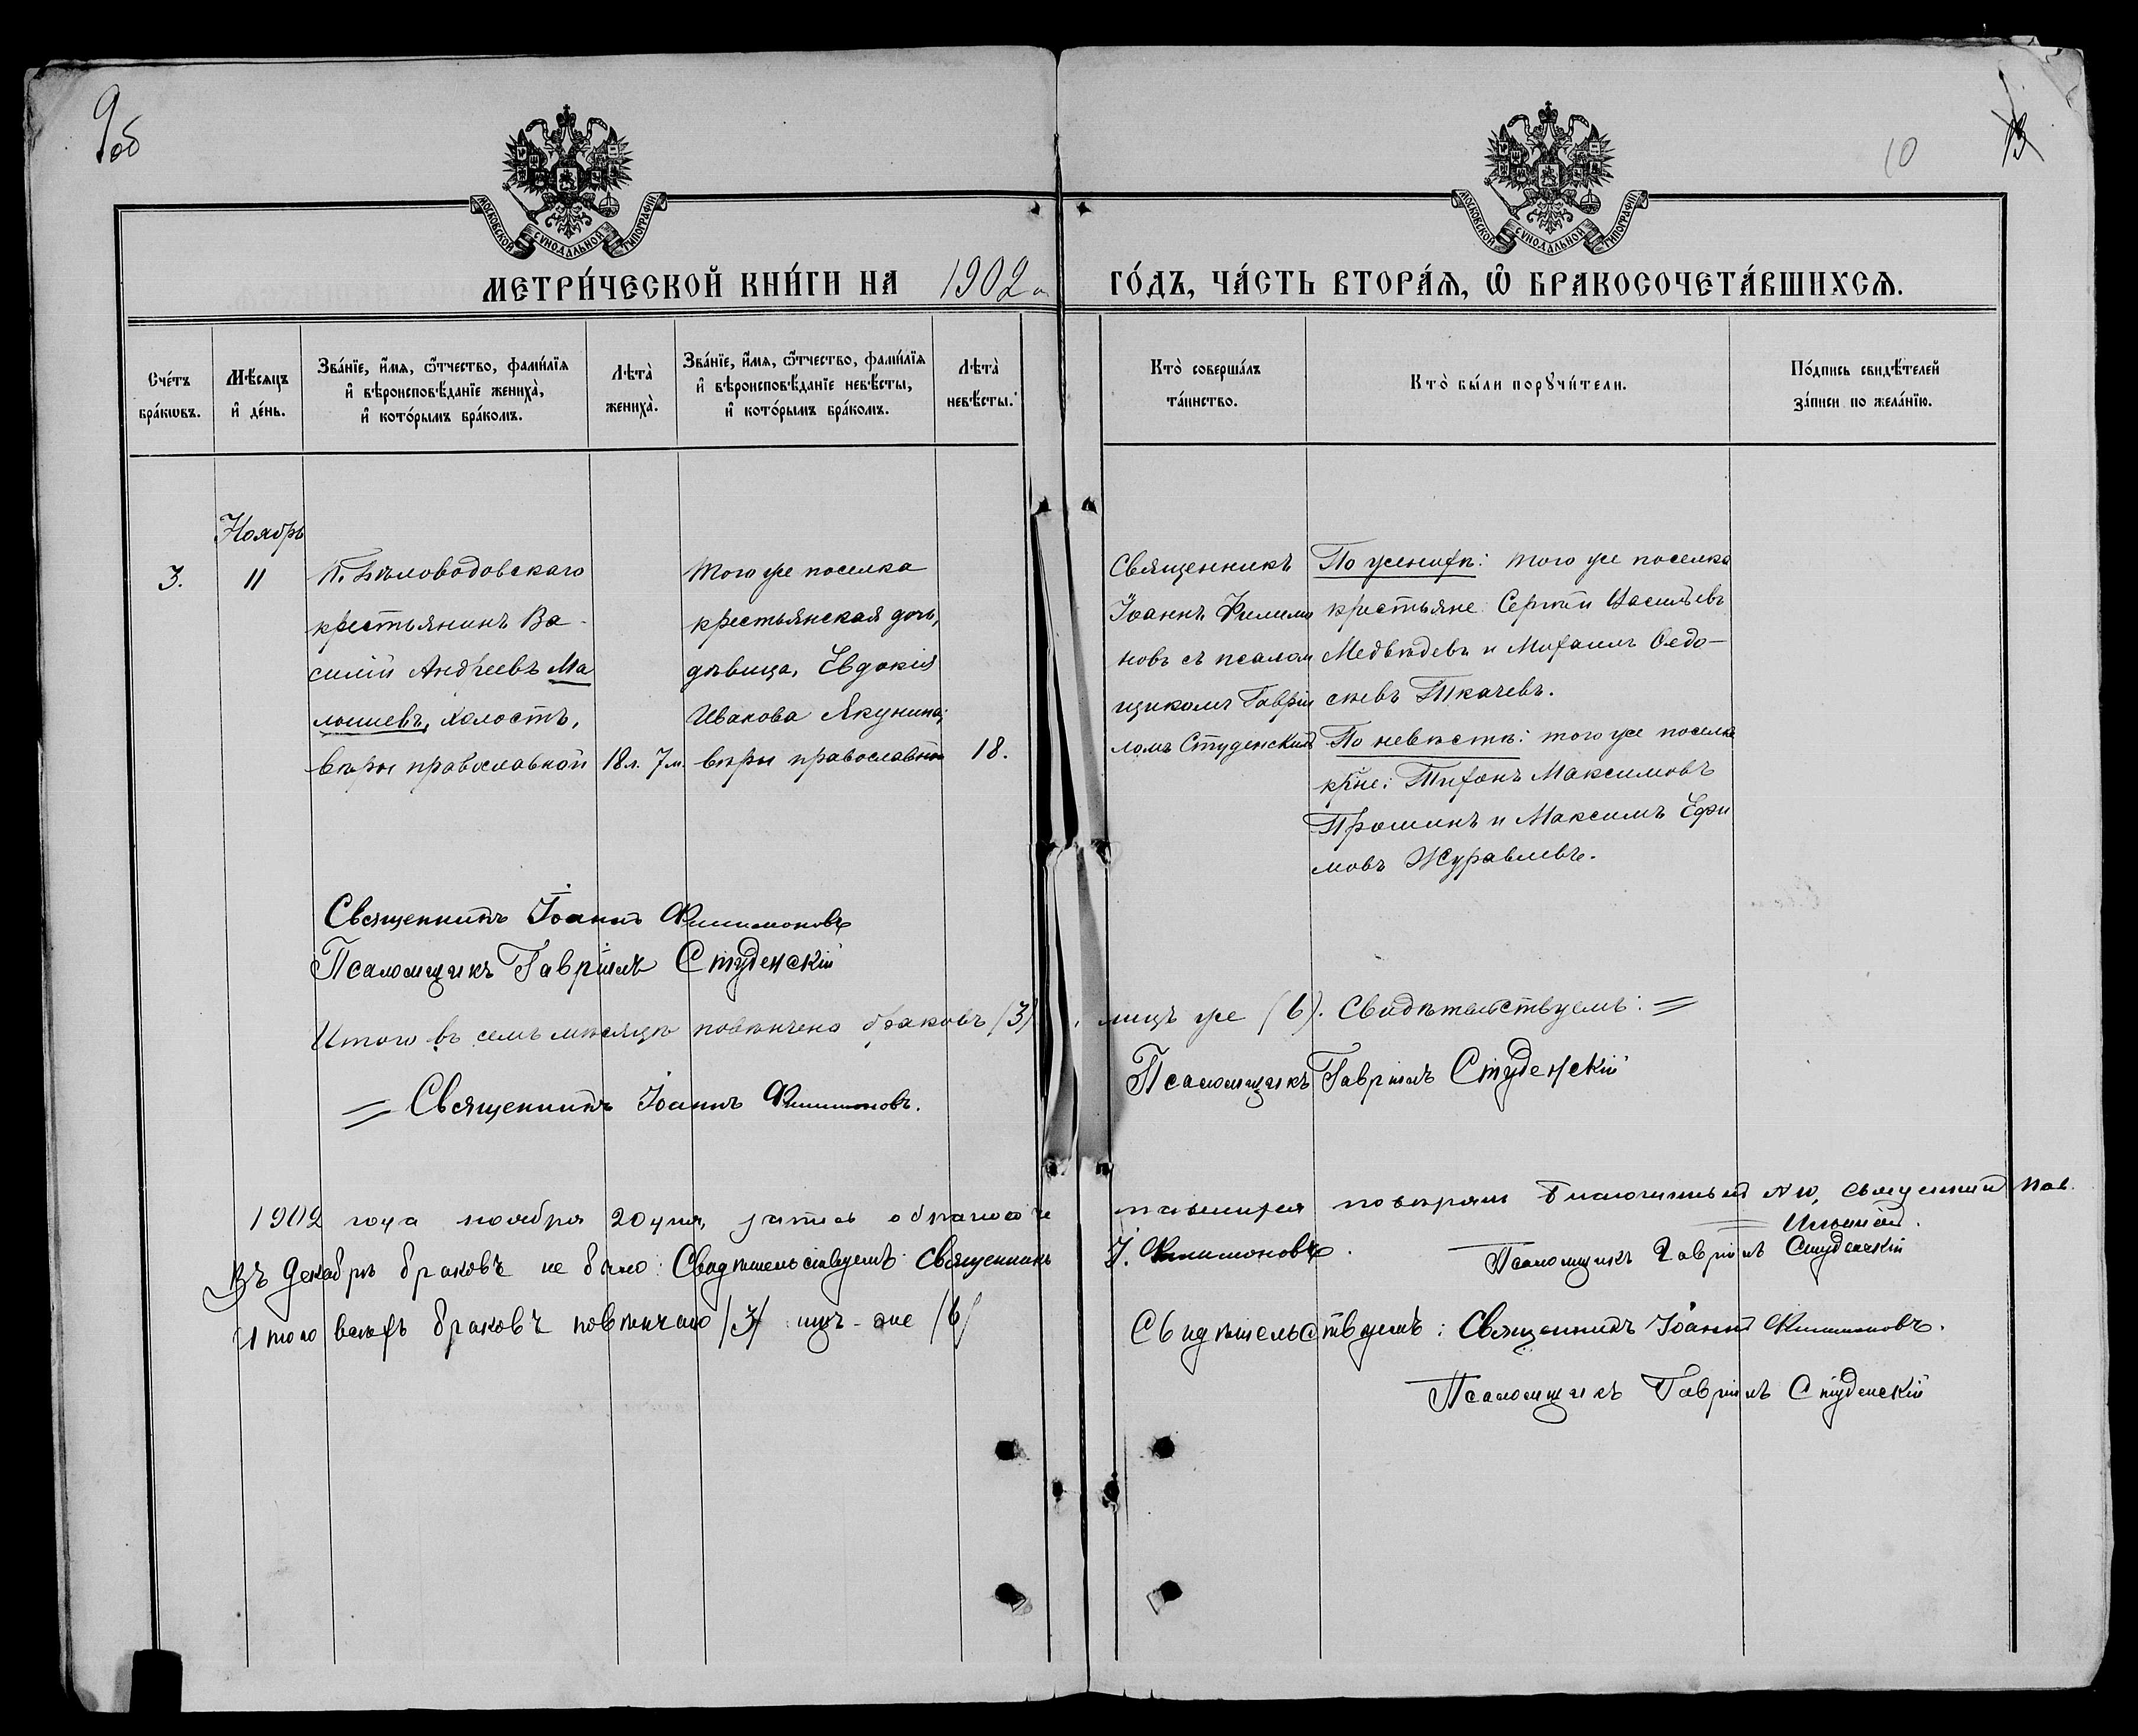 9об
10
13
МОСКОВСКОЙ СѴНОДАЛЬНОЙ ТИПОГРАФІИ
МОСКОВСКОЙ СѴНОДАЛЬНОЙ ТИПОГРАФІИ
МЕТРИ́ЧЕСКОЙ КНИ́ГИ НА 1902
ГО́ДЪ, ЧА́СТЬ ВТОРА́Ѧ, Ѽ БРАКОСОЧЕТА́ВШИХСѦ.
Сче́тъ бра́кѡвъ.
Мѣ́сяцъ и҆ де́нь.
Зва́нїе, и҆́мя, ѻ҆́тчество, фами́лїя и҆ вѣроисповѣ́данїе жениха̀, и҆ кото́рымъ бра́комъ.
Лѣта̀ жениха̀.
Зва́нїе, и҆́мя, ѻ҆́тчество, фами́лїя и҆ вѣроисповѣ́данїе невѣ́сты, и҆ кото́рымъ бра́комъ.
Лѣта̀ невѣ́сты.
Кто̀ соверша́лъ та́инство.
Кто̀ бы́ли порꙋчи́тели.
По́дпись свидѣ́телей за́писи по жела́нїю.
Ноябрь
3.
11
П. Бѣловодовскаго
крестьянинъ Ва-
силій Андреевъ Ма
лышевъ, холостъ,
вѣры православной
18л. 7м.
Того же поселка
крестьянская дочь,
дѣвица, Евдокія
Иванова Якунина,
вѣры православной
18.
Священникъ
Іоаннъ Филимо
новъ съ псалом
щикомъ Гаврiи
ломъ Студенскимъ
По женихѣ: того же поселка
крестьяне: Сергѣй Васильевъ
Медвѣдевъ и Михаилъ Ѳедо-
сѣевъ Ткачевъ.
По невѣстѣ: того же поселка
кр̃не: Тихонъ Максимовъ
Прошинъ и Максимъ Ефи
мовъ Журавлевъ.
Священникъ Іоаннъ Филимоновъ
Псаломщикъ Гавріилъ Студенскій
Итого въ семъ мѣсяцѣ повѣнчено браковъ (3),
лицъ же (6). Свидѣтельствуемъ: =
= Священникъ Іоаннъ Филимоновъ.
Псаломщикъ Гавріилъ Студенскій
1902 года ноября 20 дня, запись о бракосоче
тавшихся повѣрялъ Благочинный № 10, священникъ Пав.
Въ Декабрѣ браковъ не было: Свидѣтельствуемъ: Священникъ
І. Филимоновъ.
Псаломщикъ Гавріилъ Студенскій
Итого всѣхъ браковъ повѣнчано (3) лицъ-же (6)
Свидѣтельствуемъ: Священникъ Іоаннъ Филимоновъ.
Псаломщикъ Гавріилъ Студенскій